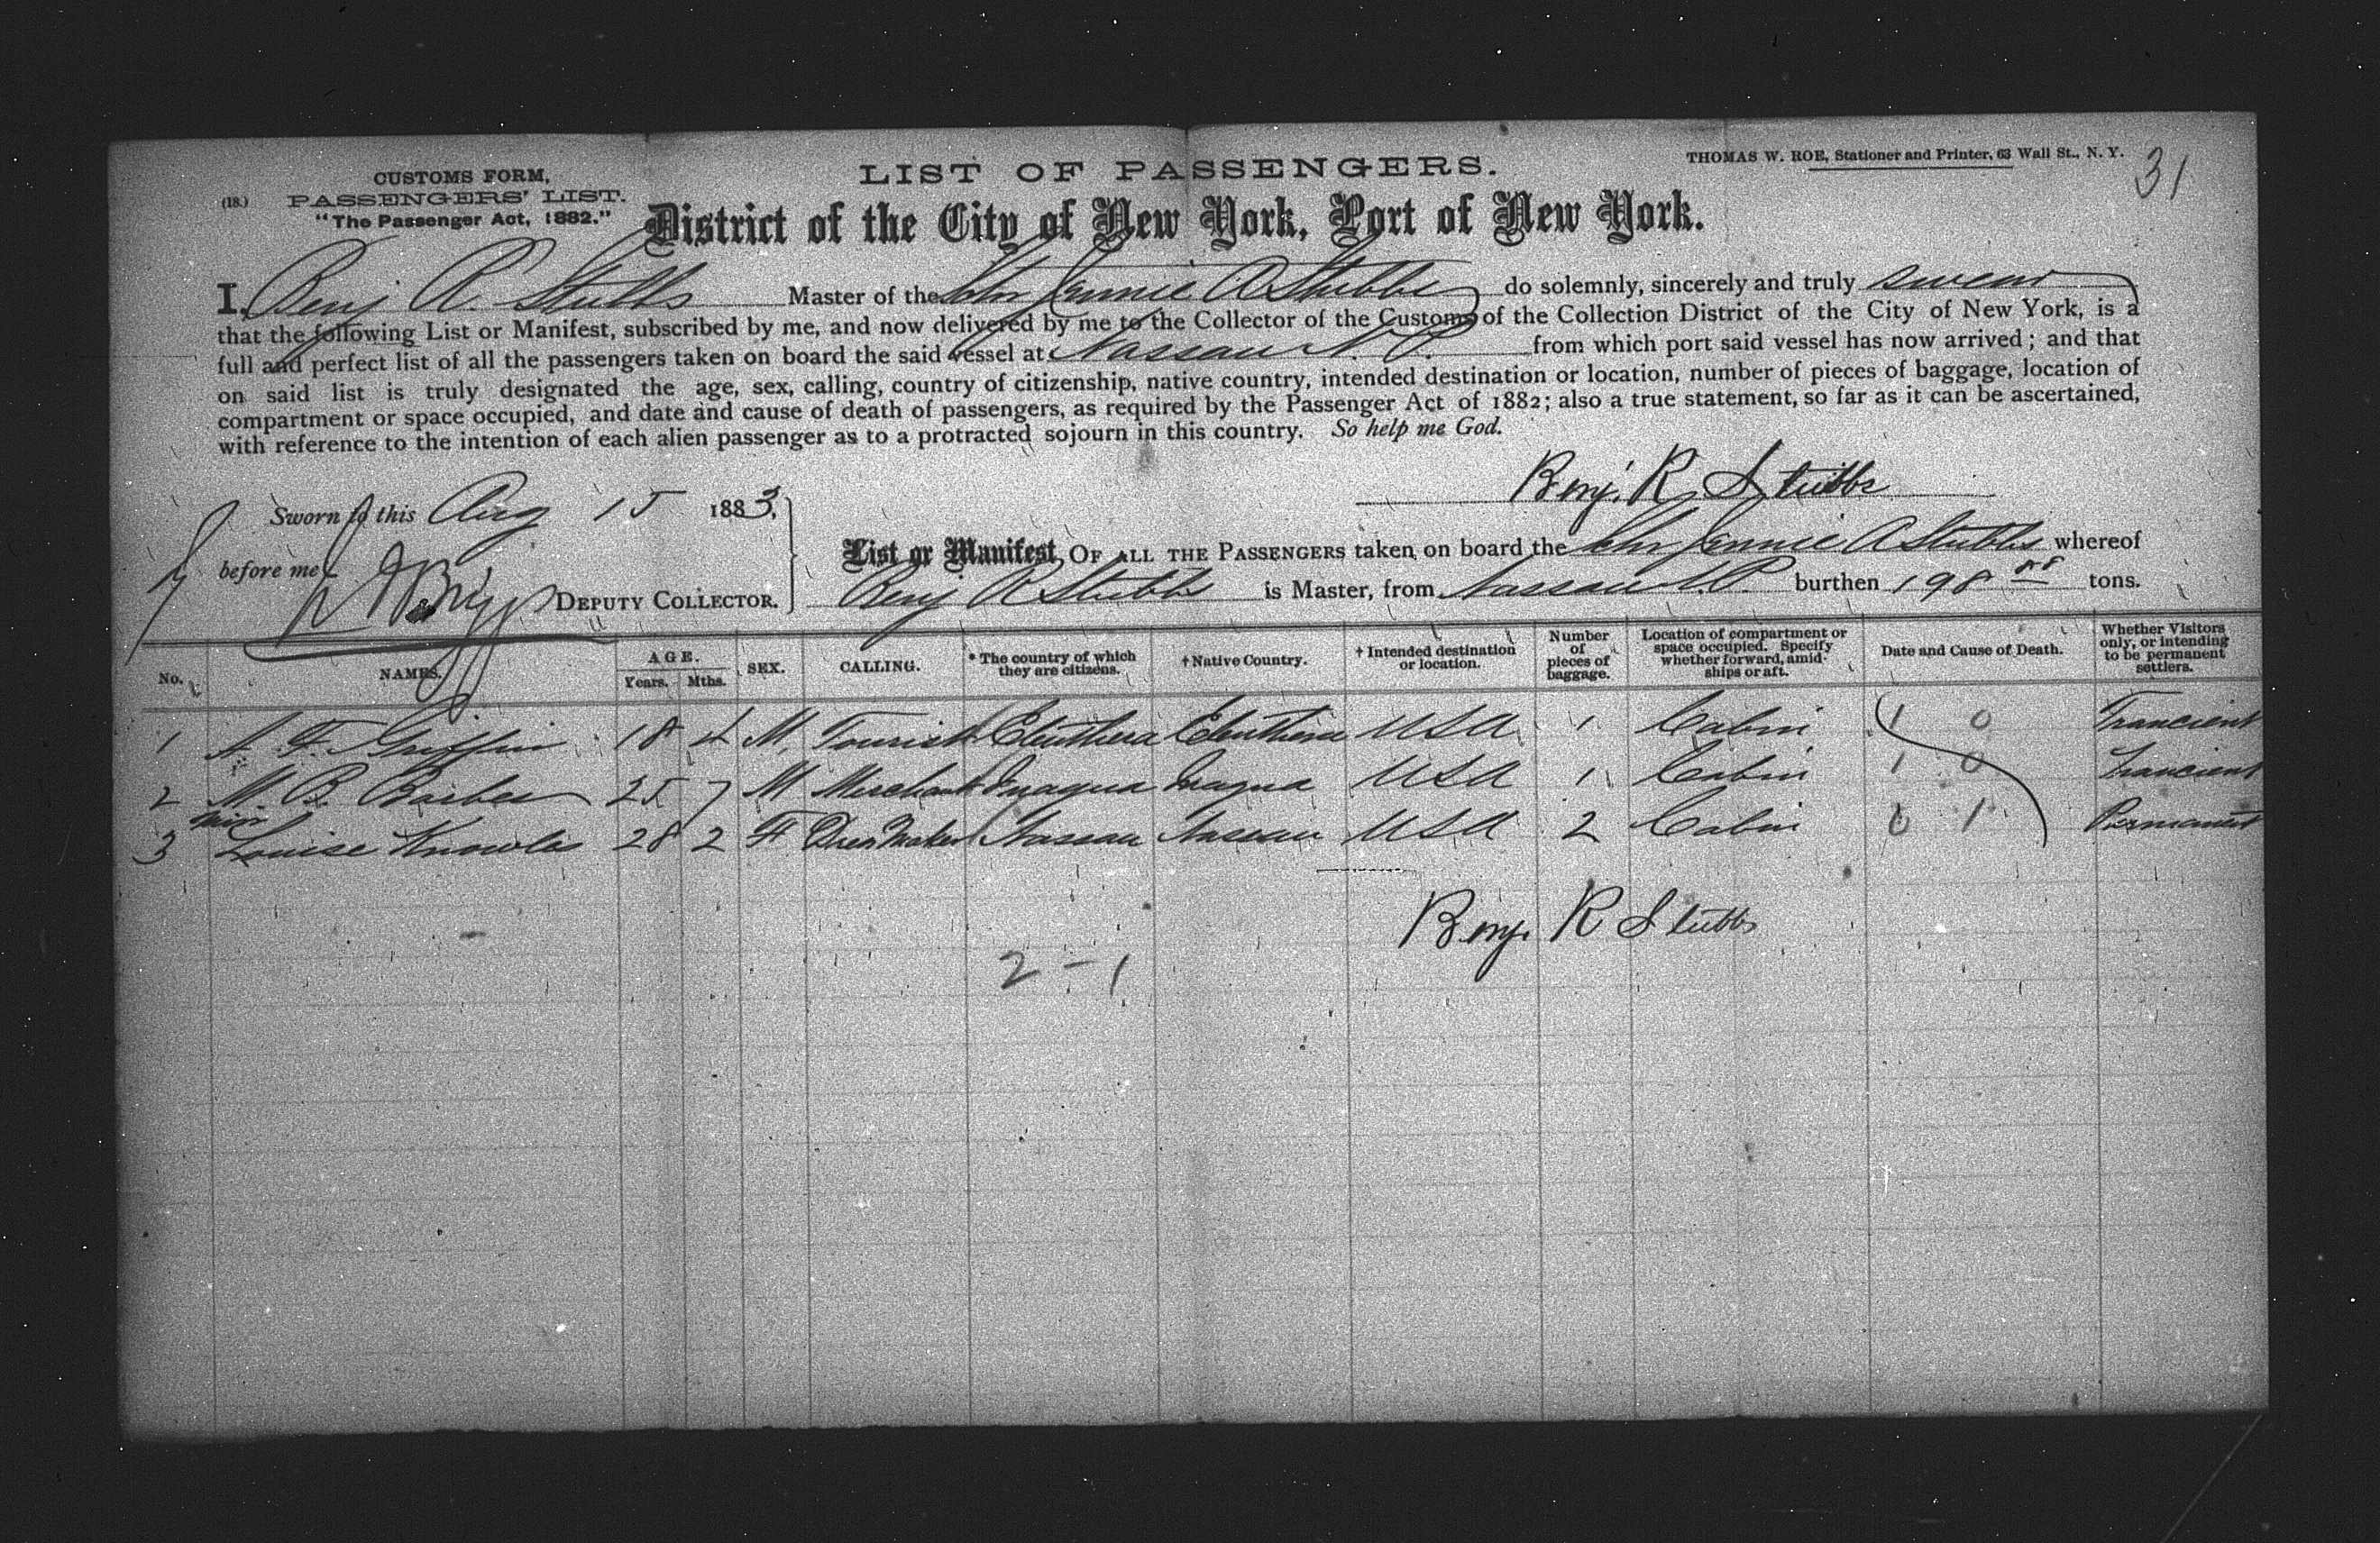 THOMAS W. ROE, Stationer and Printer, 63 Wall St., N. Y.
31
CUSTOMS FORM,
(18.) PASSENGERS' LIST.
"The Passenger Act, 1882."
LIST OF PASSENGERS.
District of the City of New York, Port of New York.
I, Benj R. Stubbs Master of the Schr Jennie A Stubbs do solemnly, sincerely and truly swear
that the following List or Manifest, subscribed by me, and now delivered by me to the Collector of the Customs of the Collection District of the City of New York, is a
full and perfect list of all the passengers taken on board the said vessel at Nassau N. P. from which port said vessel has now arrived; and that
on said list is truly designated the age, sex, calling, country of citizenship, native country, intended destination or location, number of pieces of baggage, location of
compartment or space occupied, and date and cause of death of passengers, as required by the Passenger Act of 1882; also a true statement, so far as it can be ascertained,
with reference to the intention of each alien passenger as to a protracted sojourn in this country. So help me God.
Benj. R Stubbs
Sworn to this Aug 15 1883,
before me
Briggs DEPUTY COLLECTOR.
List or Manifest OF ALL THE PASSENGERS taken on board the Schr Jennie A Stubbs whereof
Benj R Stubbs is Master, from Nassau N.P. burthen 198 88 tons.
No. NAMES. AGE. Years. Mths. SEX. CALLING. * The country of which they are citizens. † Native Country. † Intended destination or location. Number of pieces of baggage. Location of compartment or space occupied. Specify whether forward, amidships or aft. Date and Cause of Death. Whether Visitors only, or intending to be permanent settlers.
1 A. F. Griffin 18 4 M. Tourist Eleuthera Eleuthera USA 1 Cabin 1 0 Trancient
2 M. B. Barber 25 7 M Merchant Inagua Inagua USA 1 Cabin 1 0 Trancient
3 Miss Louise Knowles 28 2 F Dress Maker Nassau Nassau USA 2 Cabin 0 1 Permanent
Benj. R Stubbs
2 - 1